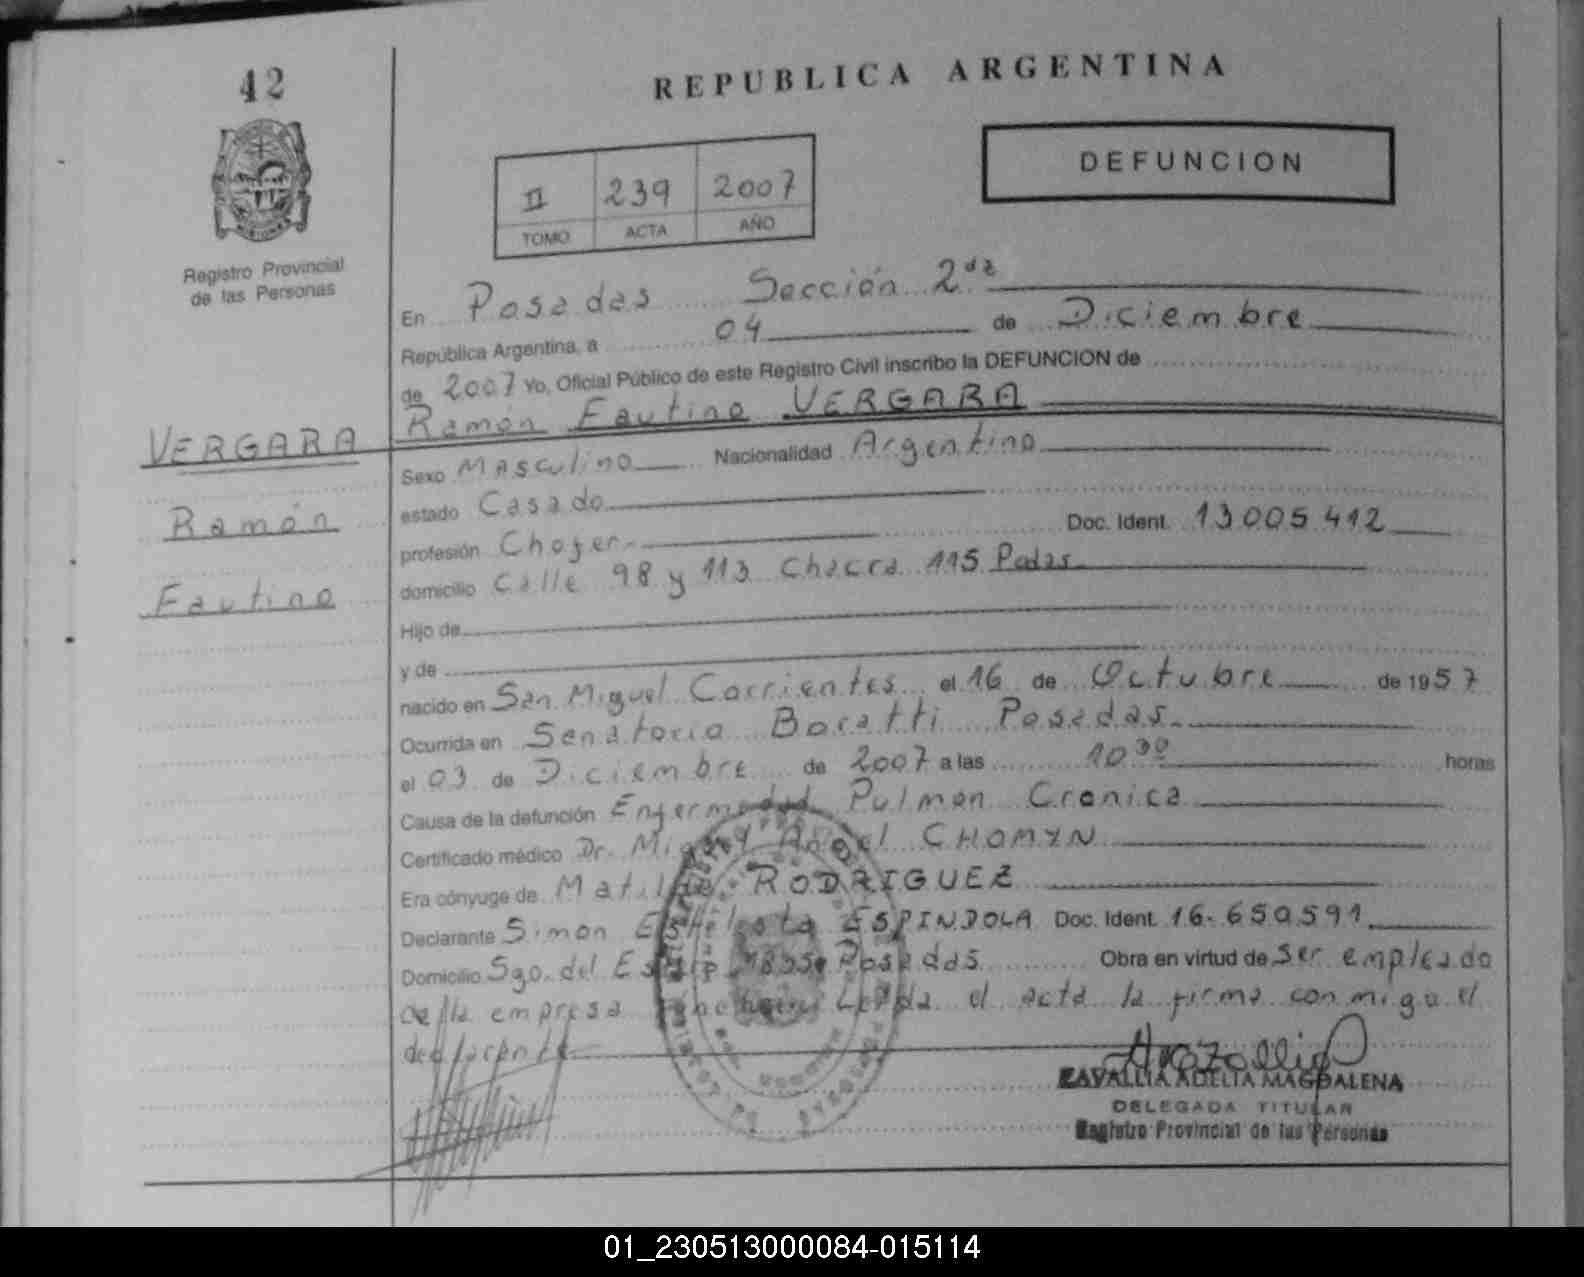 42
REPUBLICA ARGENTINA
DEFUNCION
II 239 2007
TOMO ACTA AÑO
Registro Provincial
de las Personas
En Posadas Sección 2da
República Argentina, a 04 de Diciembre
de 2007 Yo, Oficial Público de este Registro Civil inscribo la DEFUNCION de
Ramón Fautino VERGARA
VERGARA
Ramón
Fautino
Sexo Masculino Nacionalidad Argentino
estado Casado
profesión Chofer Doc. Ident. 13005412
domicilio Calle 98 y 113 Chacra 115 Pdas
Hijo de
y de
nacido en San Miguel Corrientes el 16 de Octubre de 1957
Ocurrida en Sanatorio Boratti Posadas
el 03 de Diciembre de 2007 a las 10 30 horas
Causa de la defunción Enfermedad Pulmon Cronica
Certificado médico Dr. Miguel Angel CHOMYN
Era cónyuge de Matilde RODRIGUEZ
Declarante Simon ESPINDOLA Doc. Ident. 16.650591
Domicilio Sgo. del Posadas Obra en virtud de Ser empleado
de la empresa Leida el acta la firma conmigo el
declarante
ZAVALLIA ADELIA MAGDALENA
DELEGADA TITULAR
Registro Provincial de las Personas
01_230513000084-015114